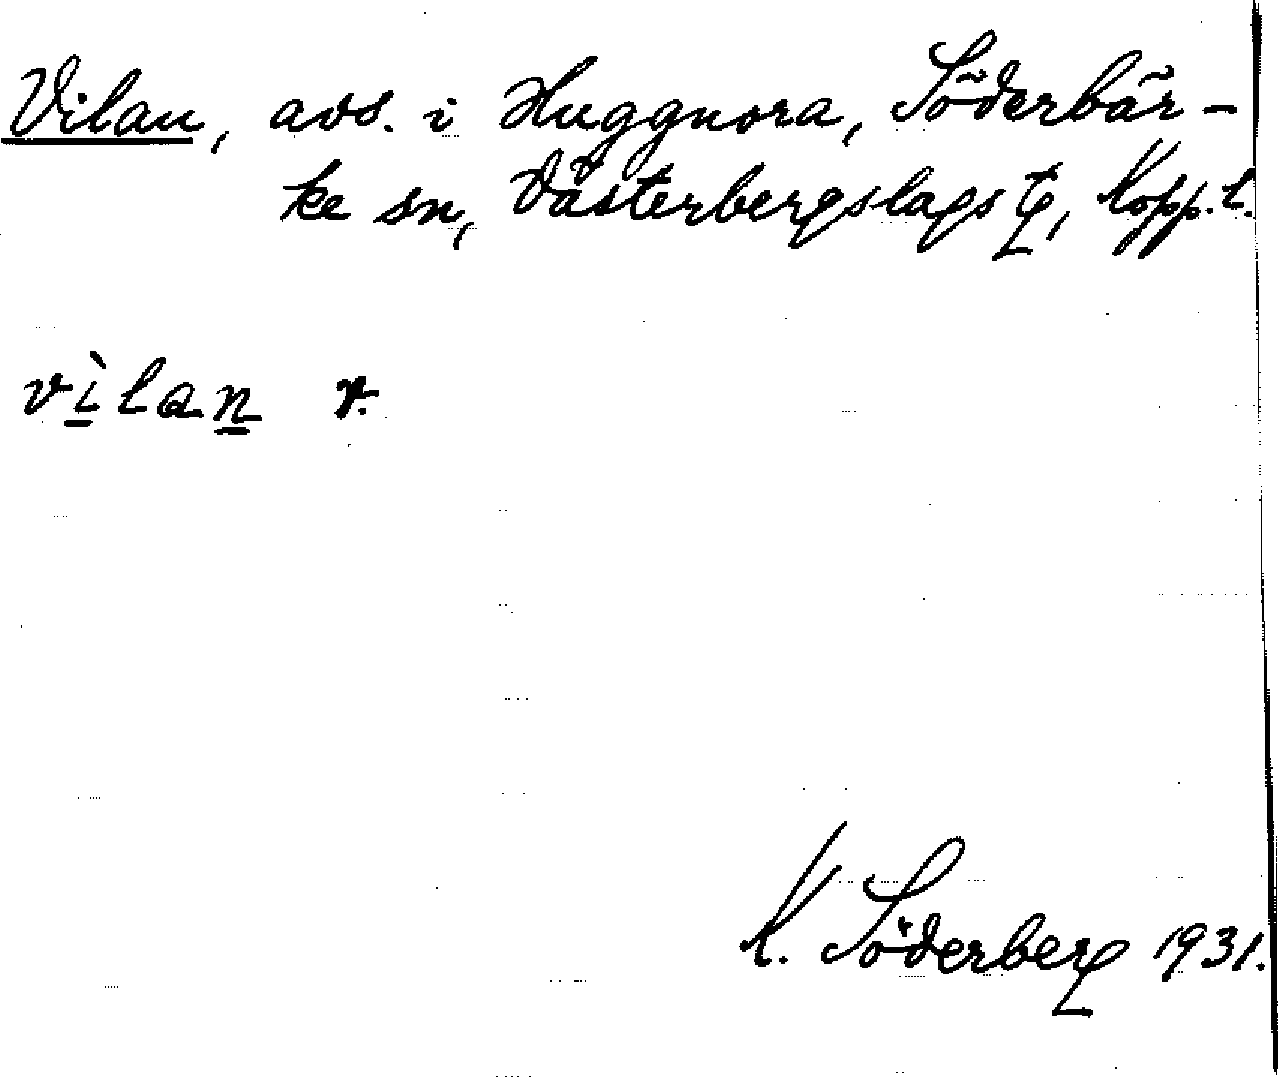 Vilan, avs. i Huggnora, Söderbär-
ke sn, Västerbergslags tg, Kopp. l.
vìlan v.
K. Söderberg 1931.